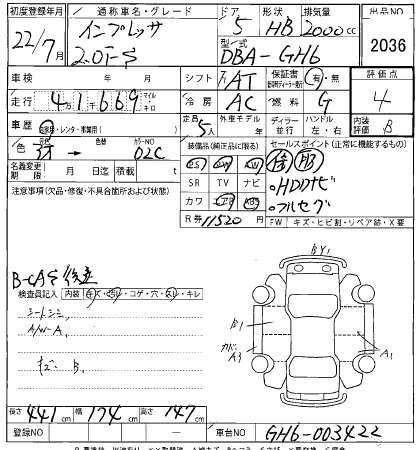 初度登録年月 通称車名・グレード ドア 形状 排気量 出品NO
22/7月 インプレッサ 2.0i-S 5 HB 2000cc 2036
型式 DBA-GH6
車検 年 月 シフト AT 保証書 有・無 評価点
走行 41669 マイル キロ 冷房 AC 燃料 G 4
車歴 自家用・レンタ・事業用 定員 5人 外車モデル 年 ディーラー 並行 ハンドル 左・右 内装評価 B
色 色替 カラーNO 02C 装備品(純正品に限る) セールスポイント(正常に機能するもの)
名義変更期限 月 日迄 積載 t PS PW
注意事項(欠品・修復・不具合箇所および状態) SR TV ナビ HDDナビ
カワ エアB ABS フルセグ
R券 11520円 FW キズ・ヒビ割・リペア跡・X要
B-CAS
検査員記入 内装 キズ・汚レ・コゲ・穴・スレ・キレ
シートシミ
A/W-A
キズ B
BY1
B1
カド A3
A1
長さ 441cm 幅 174cm 高さ 147cm
登録NO 車台NO GH6-003422